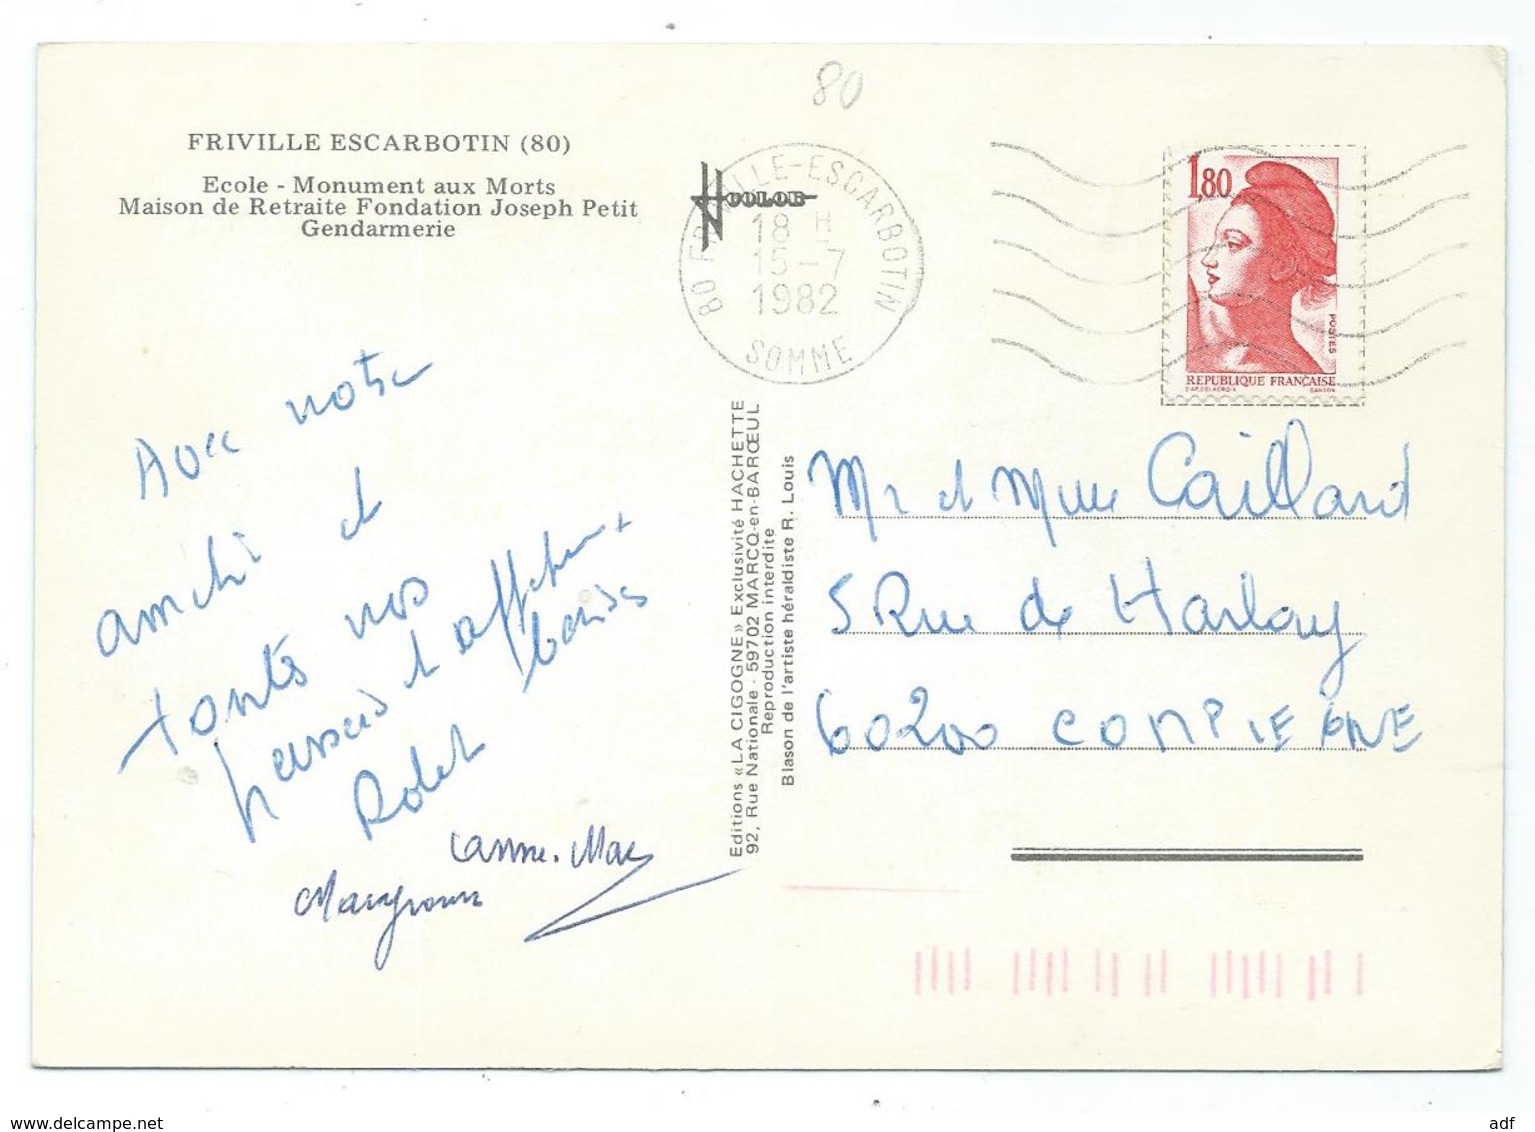 80
FRIVILLE ESCARBOTIN (80)
Ecole - Monument aux Morts
Maison de Retraite Fondation Joseph Petit
Gendarmerie
80 FRIVILLE-ESCARBOTIN
18 H
15-7
1982
SOMME
1,80
POSTES
REPUBLIQUE FRANÇAISE
D'AP. DELACROIX GANDON
Avec notre
amitié et
toutes nos
pensées et affectueux
baisers
Anne-Marie
Editions «LA CIGOGNE» Exclusivité HACHETTE
92, Rue Nationale - 59702 MARCQ-en-BARŒUL
Reproduction interdite
Blason de l'artiste héraldiste R. Louis
Mr et Mme Caillard
5 Rue de Harlay
60200 COMPIEGNE
www.delcampe.net
adf